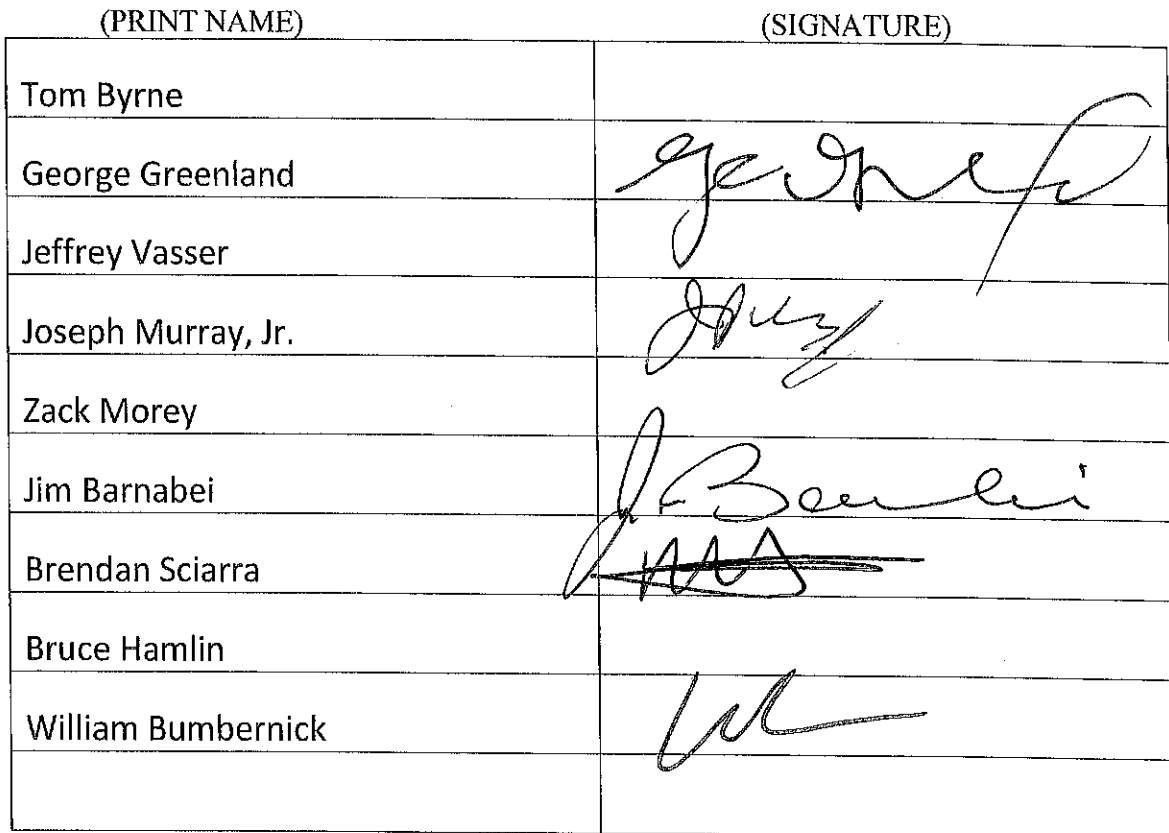 (PRINT NAME) (SIGNATURE)
Tom Byrne
George Greenland
Jeffrey Vasser
Joseph Murray, Jr.
Zack Morey
Jim Barnabei
Brendan Sciarra
Bruce Hamlin
William Bumbernick